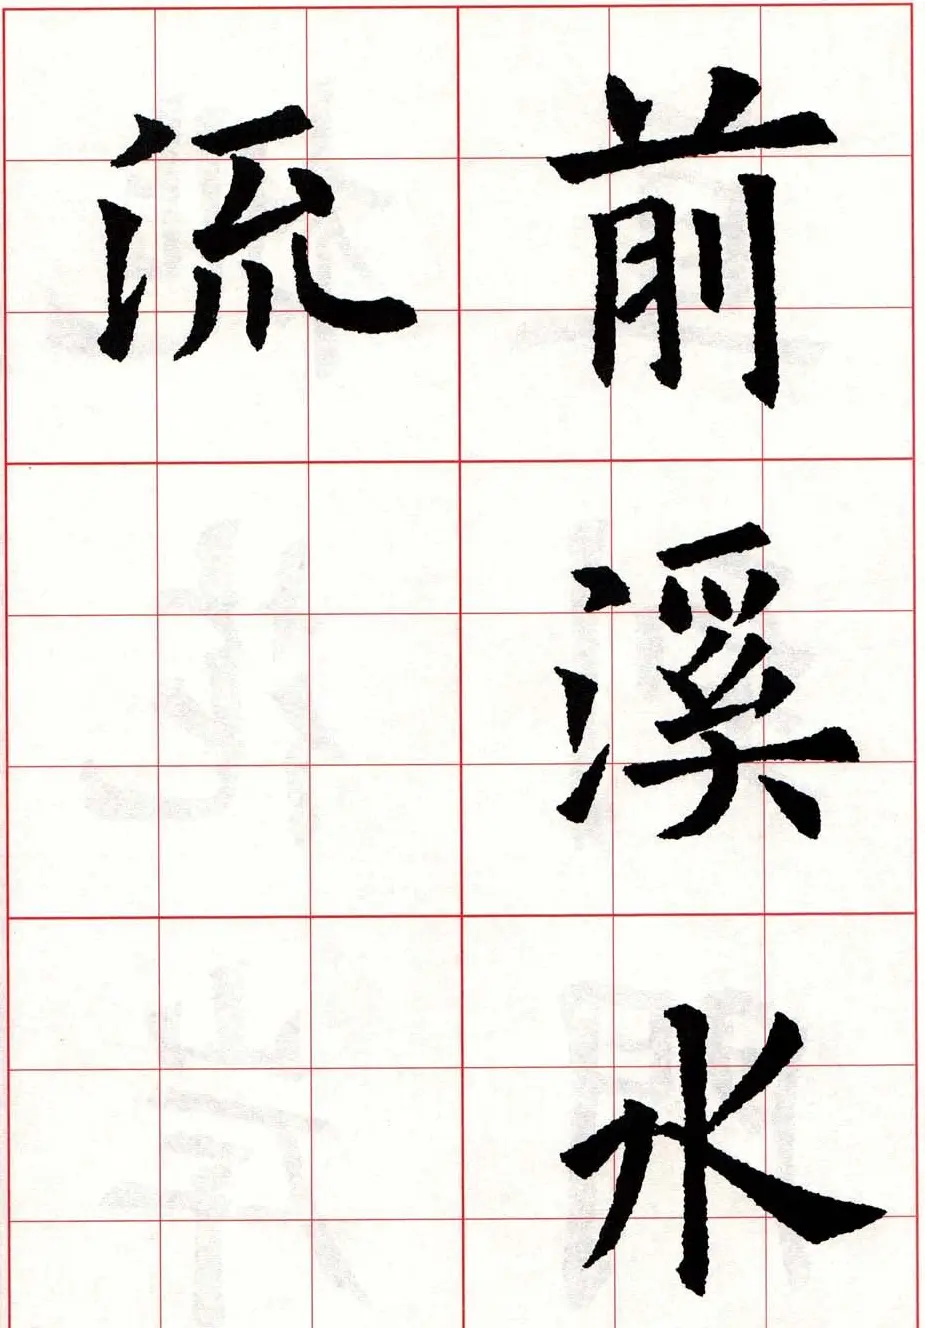 前溪水
流